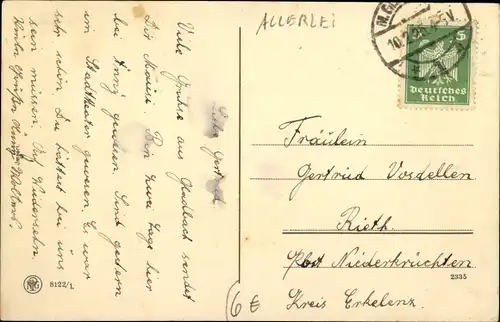 ALLERLEI
M.GL
10.2.26
5
Deutsches
Reich
Liebe Gertrud
Viele Grüße aus Gladbach sendet
Dir Maria. Bin zwei Tage hier
bei Änny gewesen. Sind gestern
im Stadttheater gewesen. Es war
sehr schön. Du hättest bei uns
sein müssen. Auf Wiedersehn.
Fräulein
Gertrud Vosdellen
Rieth.
Post Niederkrüchten
Kreis Erkelenz.
8122/1.
2335
6 €